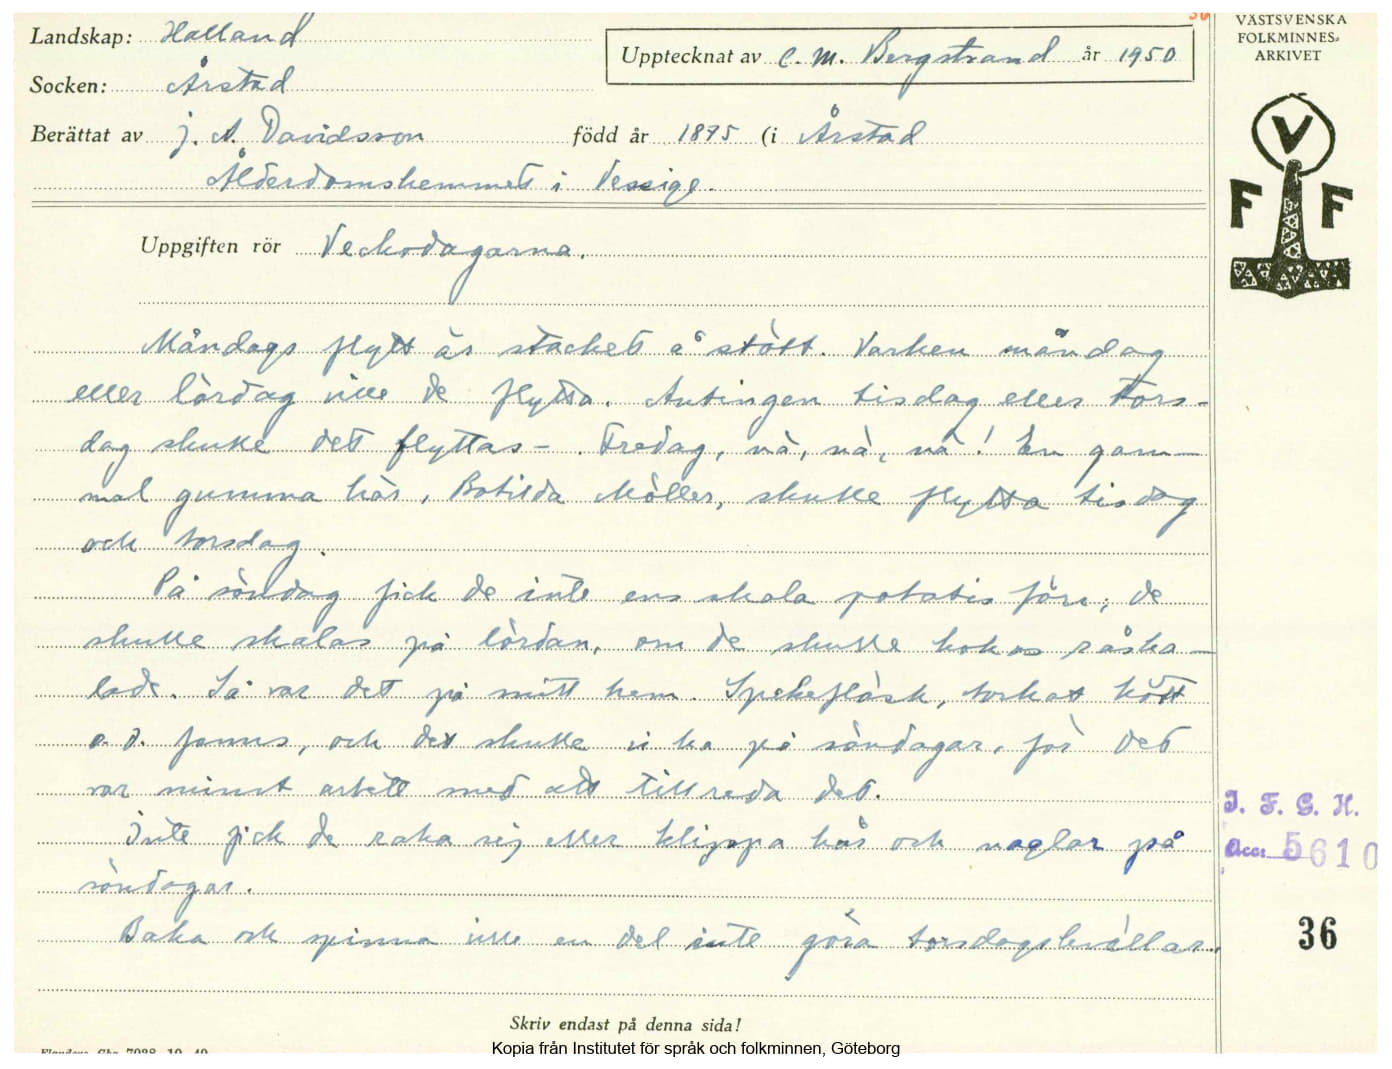 36
VÄSTSVENSKA
FOLKMINNES-
ARKIVET
Landskap: Halland
Upptecknat av C. M. Bergstrand år 1950
Socken: Årstad
Berättat av J. A. Davidsson född år 1875 (i Årstad
Ålderdomshemmet i Vessige.
V
F F
Uppgiften rör Veckodagarna.
Måndags flytt är stacket å stött. Varken måndag
eller lördag ville de flytta. Antingen tisdag eller tors-
dag skulle det flyttas -. Fredag, nä, nä, nä! En gam-
mal gumma här, Botilda Möller, skulle flytta tisdag
och torsdag.
På söndag fick de inte ens skala potatis förr, de
skulle skalas på lördan, om de skulle kokas råska-
lade. Så var det på mitt hem. Spickefläsk, torkat kött
o. d. fanns, och det skulle vi ha på söndagar, för det
var minst arbete med att tillreda det.
Inte fick de raka sej eller klippa hår och naglar på
söndagar.
Baka och spinna ville en del inte göra torsdagskvällar.
I. F. G. H.
Acc: 5610
36
Skriv endast på denna sida!
Kopia från Institutet för språk och folkminnen, Göteborg